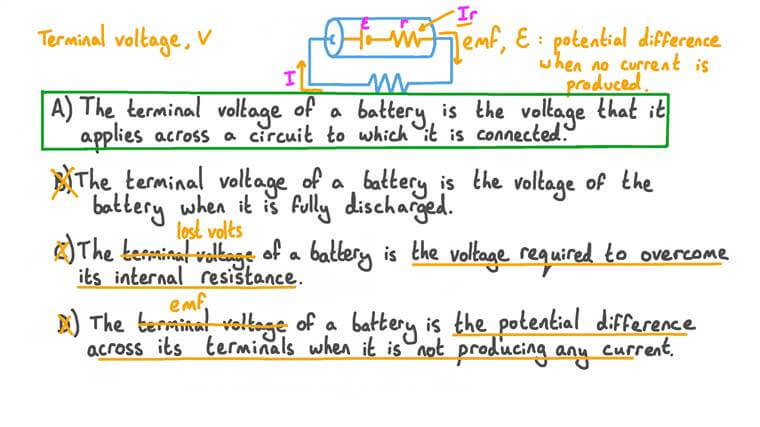 Terminal voltage, V
ε r Ir
I
emf, ε : potential difference
when no current is
produced.
A) The terminal voltage of a battery is the voltage that it
applies across a circuit to which it is connected.
B) The terminal voltage of a battery is the voltage of the
battery when it is fully discharged.
lost volts
C) The terminal voltage of a battery is the voltage required to overcome
its internal resistance.
emf
D) The terminal voltage of a battery is the potential difference
across its terminals when it is not producing any current.